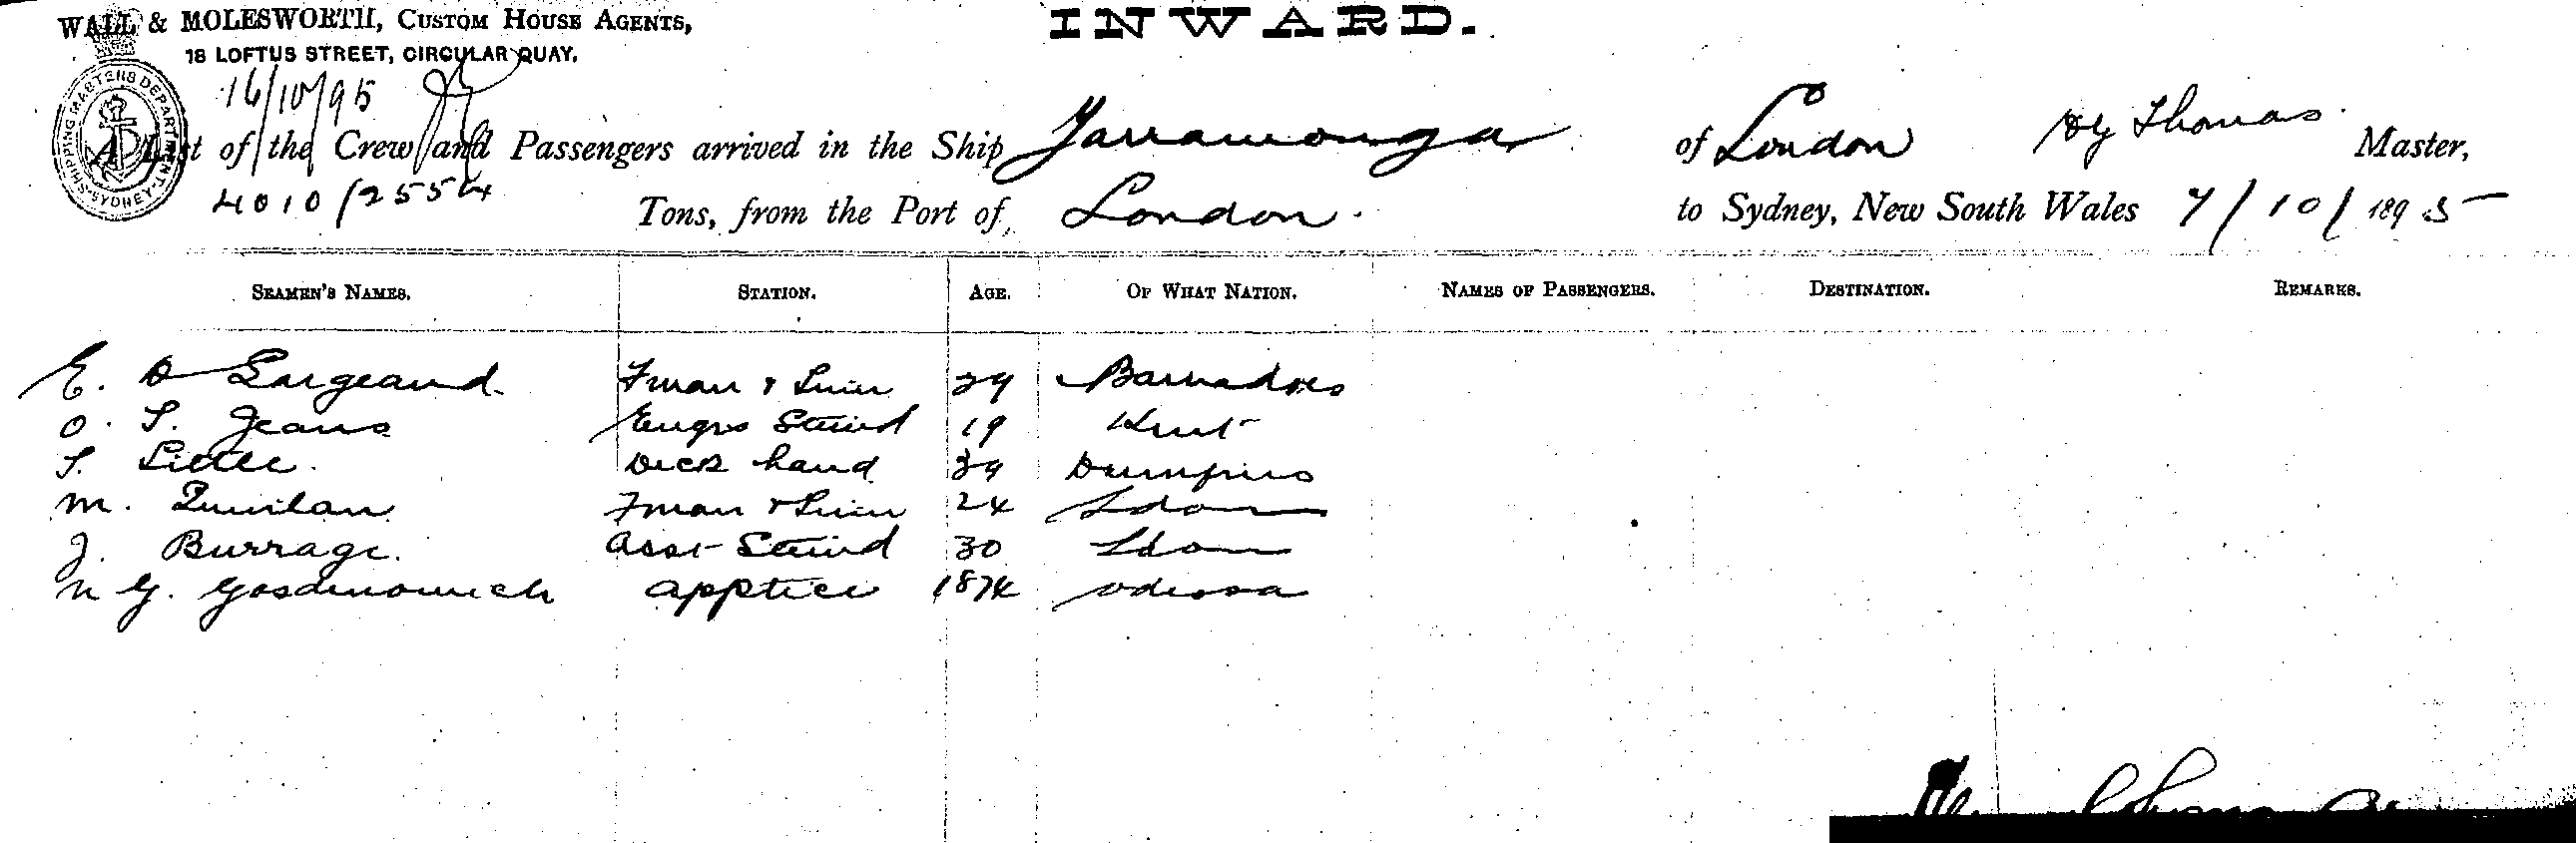 WALL & MOLESWORTH, CUSTOM HOUSE AGENTS,
18 LOFTUS STREET, CIRCULAR QUAY.
INWARD.
SHIPPING MASTERS DEPARTMENT SYDNEY
16/10/95
A List of the Crew and Passengers arrived in the Ship Yarrawonga of London Hy Thomas Master,
4010/2554 Tons, from the Port of London. to Sydney, New South Wales 7/10/1895
SEAMEN'S NAMES. STATION. AGE. OF WHAT NATION. NAMES OF PASSENGERS. DESTINATION. REMARKS.
E. D Largeaud Fman & Trim 29 Barbadoes
O. T. Jeans Engrs Stewd 19 Kent
T. Little. Deck hand 39 Dumfries
M. Quinlan Fman & Trim 24 Ldon
J. Burrage. Asst Stewd 30 Ldon
N G. Apptice 1874 Odessa